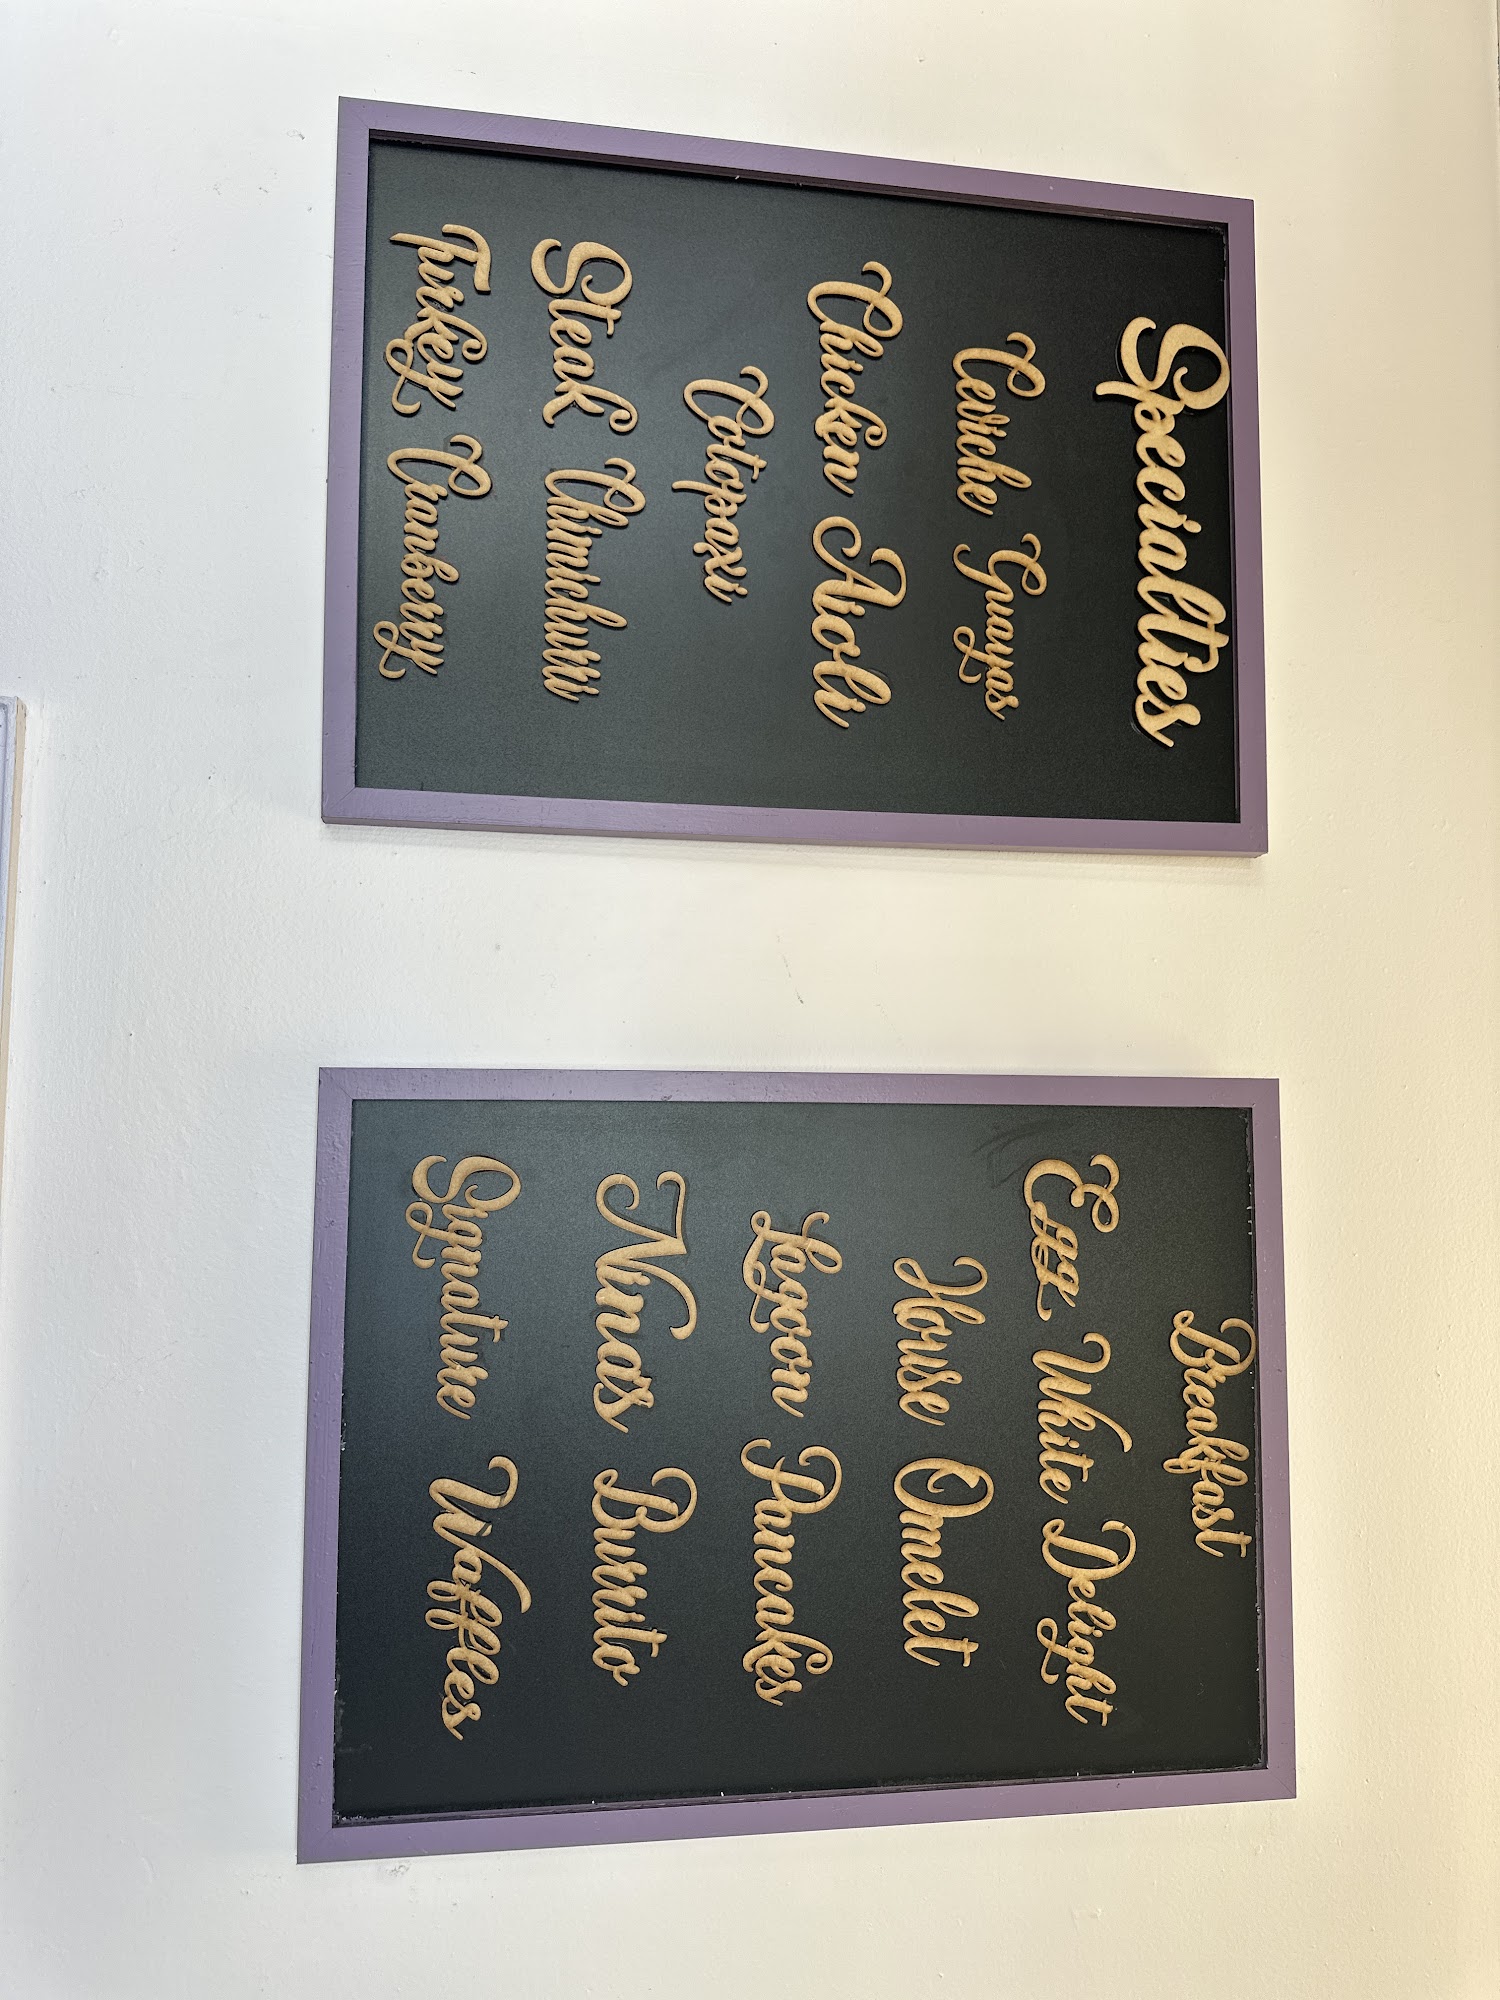 Specialties
Ceviche Guayas
Chicken Aioli
Cotopaxi
Steak Chimichurri
Turkey Cranberry
Breakfast
Egg White Delight
House Omelet
Logoon Pancakes
Nina's Burrito
Signature Waffles